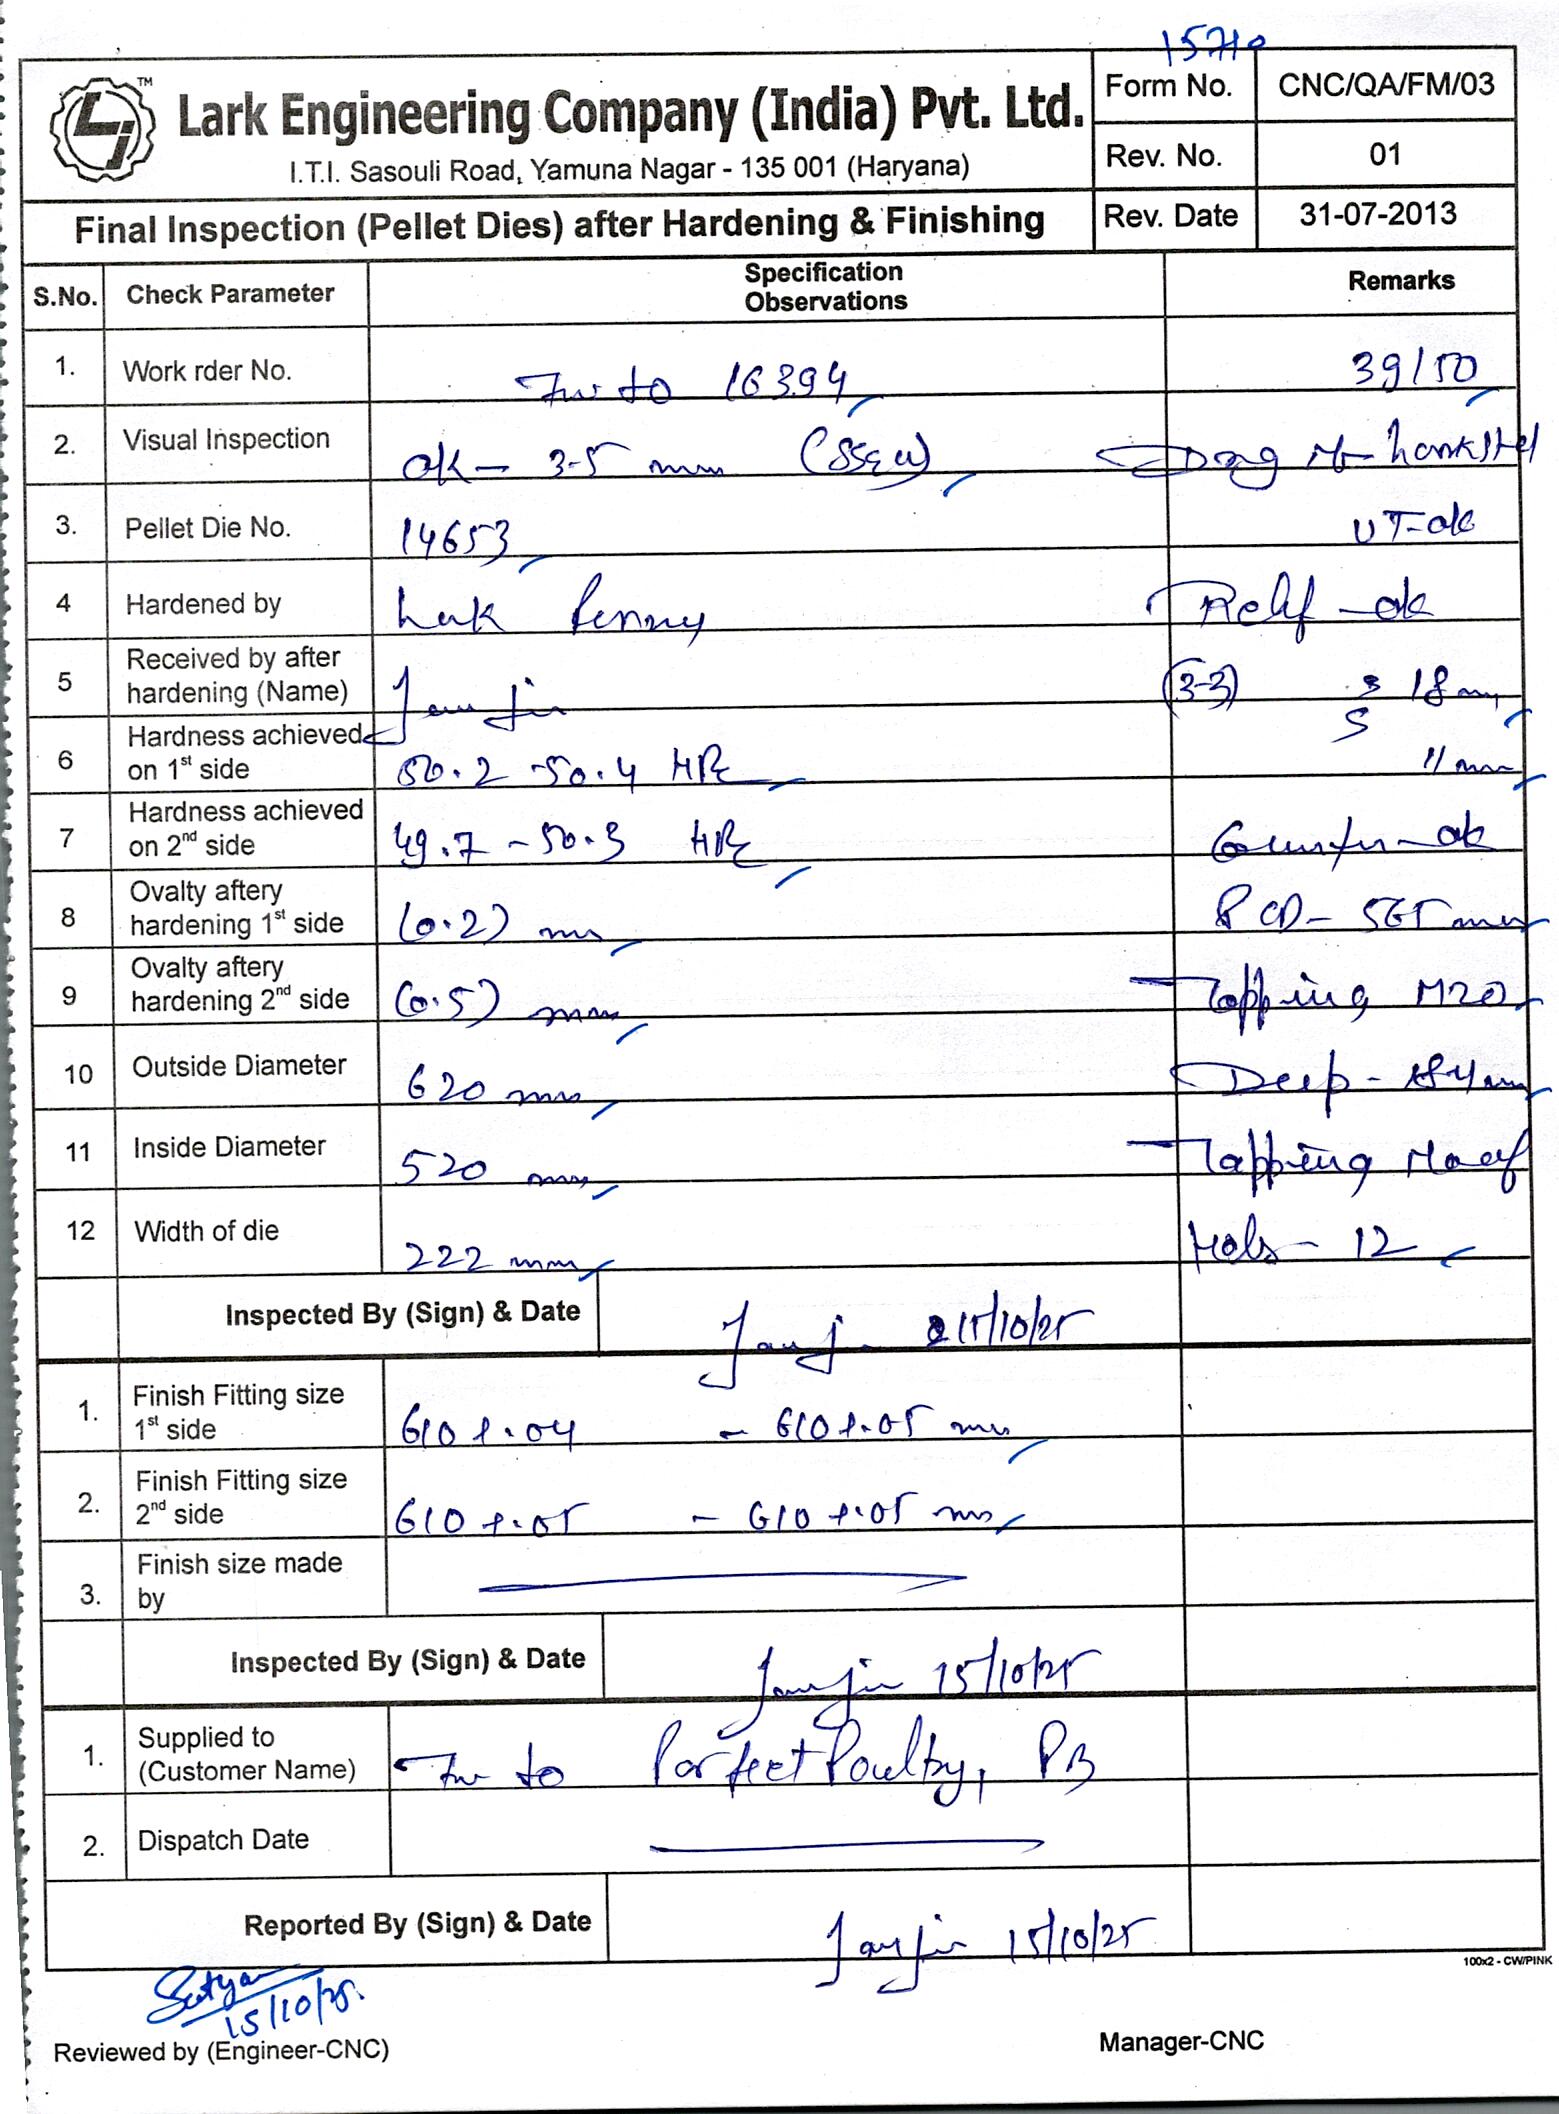 15710
TM
Lark Engineering Company (India) Pvt. Ltd.
I.T.I. Sasouli Road, Yamuna Nagar - 135 001 (Haryana)
Form No. CNC/QA/FM/03
Rev. No. 01
Final Inspection (Pellet Dies) after Hardening & Finishing
Rev. Date 31-07-2013
S.No. Check Parameter Specification Observations Remarks
1. Work rder No. to 16394 39/50
2. Visual Inspection ok - 3.5 mm
3. Pellet Die No. 14653 UT-ok
4 Hardened by Relif - ok
5 Received by after hardening (Name) (3-3) 18 mm
6 Hardness achieved on 1st side 50.2 - 50.4 HRc 11 mm
7 Hardness achieved on 2nd side 49.7 - 50.3 HRc ok
8 Ovalty aftery hardening 1st side (0.2) mm PCD - 565 mm
9 Ovalty aftery hardening 2nd side (0.5) mm Tapping M20
10 Outside Diameter 620 mm Deep -
11 Inside Diameter 520 mm Tapping
12 Width of die 222 mm Hols - 12
Inspected By (Sign) & Date 15/10/25
1. Finish Fitting size 1st side 610 +.04 - 610 +.05 mm
2. Finish Fitting size 2nd side 610 +.05 - 610 +.05 mm
3. Finish size made by
Inspected By (Sign) & Date 15/10/25
1. Supplied to (Customer Name) to Perfect Poultry, PB
2. Dispatch Date
Reported By (Sign) & Date 15/10/25
100x2 - CW/PINK
Satyam
15/10/25.
Reviewed by (Engineer-CNC) Manager-CNC